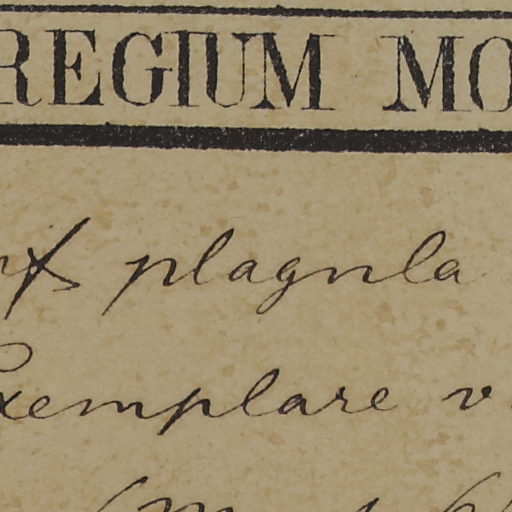 REGIUM MO
plagula
Exemplare v.